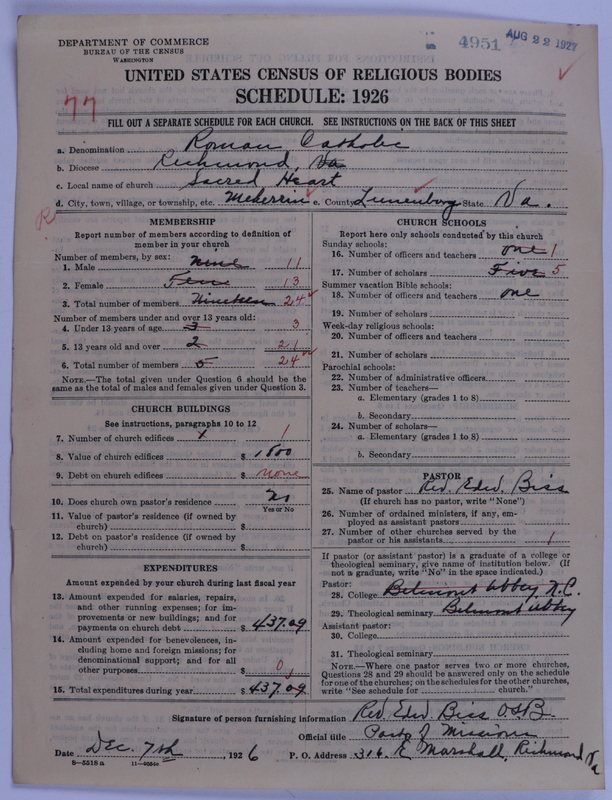 DEPARTMENT OF COMMERCE
BUREAU OF THE CENSUS
WASHINGTON
4951
AUG 22 1927
UNITED STATES CENSUS OF RELIGIOUS BODIES
SCHEDULE: 1926
77
FILL OUT A SEPARATE SCHEDULE FOR EACH CHURCH. SEE INSTRUCTIONS ON THE BACK OF THIS SHEET
a. Denomination Roman Catholic
b. Diocese Richmond, Va
c. Local name of church Sacred Heart
d. City, town, village, or township, etc. Meherrin e. County Lunenburg State Va.
R
MEMBERSHIP
Report number of members according to definition of
member in your church
Number of members, by sex:
1. Male nine 11
2. Female 13
3. Total number of members Nineteen 24
Number of members under and over 13 years old:
4. Under 13 years of age 3 3
5. 13 years old and over 2 21
6. Total number of members 5 24
NOTE.—The total given under Question 6 should be
same as the total of males and females given under Question 3.
CHURCH BUILDINGS
See instructions, paragraphs 10 to 12
7. Number of church edifices 1
8. Value of church edifices $ 1800
9. Debt on church edifices $ none
10. Does church own pastor's residence no
Yes or No
11. Value of pastor's residence (if owned by
church) $
12. Debt on pastor's residence (if owned by
church) $
EXPENDITURES
Amount expended by your church during last fiscal year
13. Amount expended for salaries, repairs,
and other running expenses; for im-
provements or new buildings; and for
payments on church debt $ 437.09
14. Amount expended for benevolences, in-
cluding home and foreign missions; for
denominational support; and for all
other purposes $ 0
15. Total expenditures during year $ 437.09
CHURCH SCHOOLS
Report here only schools conducted by this church
Sunday schools:
16. Number of officers and teachers one 1
17. Number of scholars Five 5
Summer vacation Bible schools:
18. Number of officers and teachers one
19. Number of scholars
Week-day religious schools:
20. Number of officers and teachers
21. Number of scholars
Parochial schools:
22. Number of administrative officers
23. Number of teachers—
a. Elementary (grades 1 to 8)
b. Secondary
24. Number of scholars—
a. Elementary (grades 1 to 8)
b. Secondary
PASTOR
25. Name of pastor Rev. Edw. Biss
(If church has no pastor, write "None")
26. Number of ordained ministers, if any, em-
ployed as assistant pastors
27. Number of other churches served by the
pastor or his assistants 1
If pastor (or assistant pastor) is a graduate of a college or
theological seminary, give name of institution below. (If
not a graduate, write "No" in the space indicated.)
Pastor:
28. College Belmont Abbey N.C.
29. Theological seminary Belmont Abbey
Assistant pastor:
30. College
31. Theological seminary
NOTE.—Where one pastor serves two or more churches,
Questions 28 and 29 should be answered only on the schedule
for one of the churches; on the schedules for the other churches,
write "See schedule for church."
Signature of person furnishing information Rev. Edw. Biss OSB.
Official title Pastor of Missions
Date Dec. 7th, 1926 P. O. Address 316 E Marshall, Richmond, Va
8-5518 a